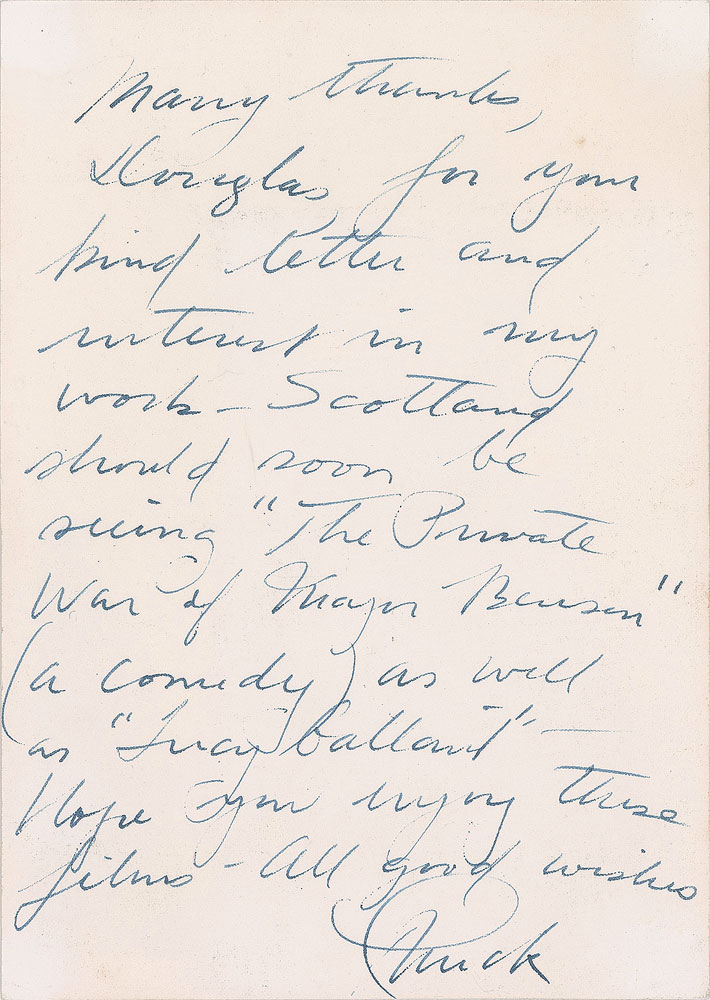 Many thanks,
Douglas, for your
kind letter and
interest in my
work - Scotland
should soon be
seeing "The Private
War of Major Benson"
(a comedy) as well
as "Lucy Gallant" -
Hope you enjoy these
films - All good wishes
Chuck